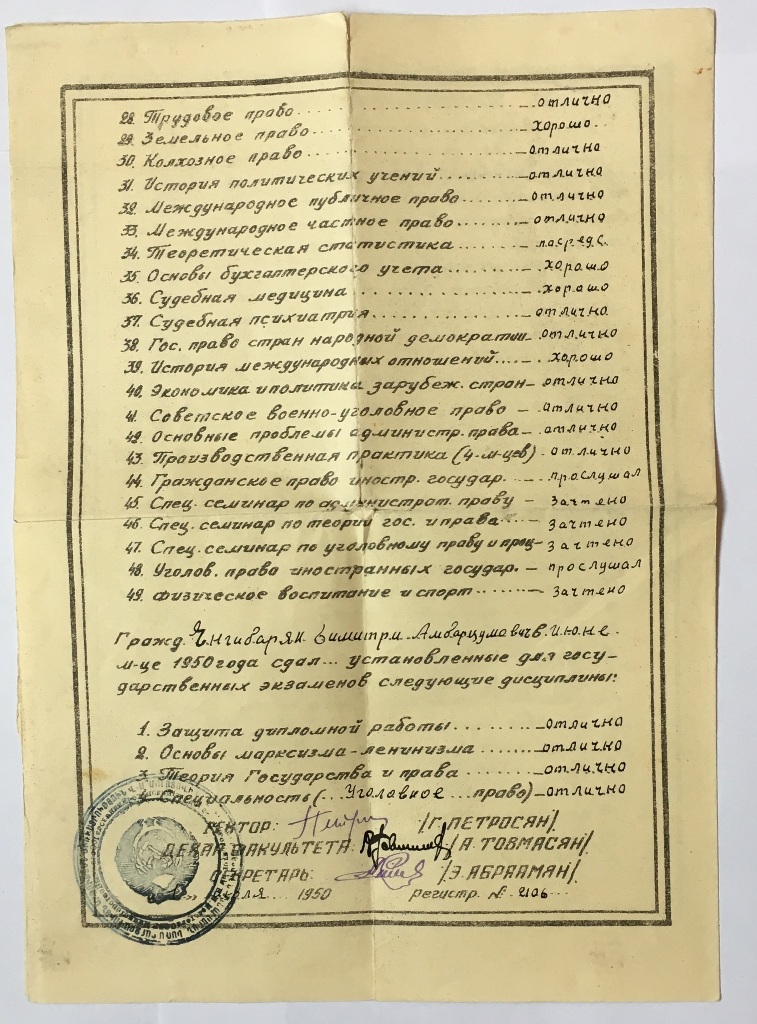 28. Трудовое право.......... отлично
29. Земельное право.......... хорошо.
30. Колхозное право.......... отлично
31. История политических учений.......... отлично
32. Международное публичное право... отлично
33. Международное частное право... отлично
34. Теоретическая статистика....... посредс.
35. Основы бухгалтерского учета....... хорошо
36. Судебная медицина.......... хорошо
37. Судебная психиатрия.......... отлично
38. Гос. право стран народной демократии отлично
39. История международных отношений..... хорошо
40. Экономика и политика зарубеж. стран- отлично
41. Советское военно-уголовное право - отлично
42. Основные проблемы администр. права- отлично
43. Производственная практика (4-м-цев) - отлично
44. Гражданское право иностр. государ. - прослушал
45. Спец. семинар по администрат. праву - зачтено
46. Спец. семинар по теорий гос. и права... зачтено
47. Спец. семинар по уголовному праву и проц- зачтено
48. Уголов. право иностранных государ. - прослушал
49. Физическое воспитание и спорт........ зачтено
Гражд. Енгибарян Димитри Амбарцумович в июне
м-це 1950 года сдал... установленные для госу-
дарственных экзаменов следующие дисциплины:
1. Защита дипломной работы......... отлично
2. Основы марксизма-ленинизма...... отлично
3. Теория Государства и права...... отлично
4. Специальность (..Уголовное...право) - отлично
РЕКТОР: /Г. ПЕТРОСЯН/
ДЕКАН ФАКУЛЬТЕТА: /А. ТОВМАСЯН/
СЕКРЕТАРЬ: /Э. АБРААМЯН/
июля 1950 регистр. № 2106